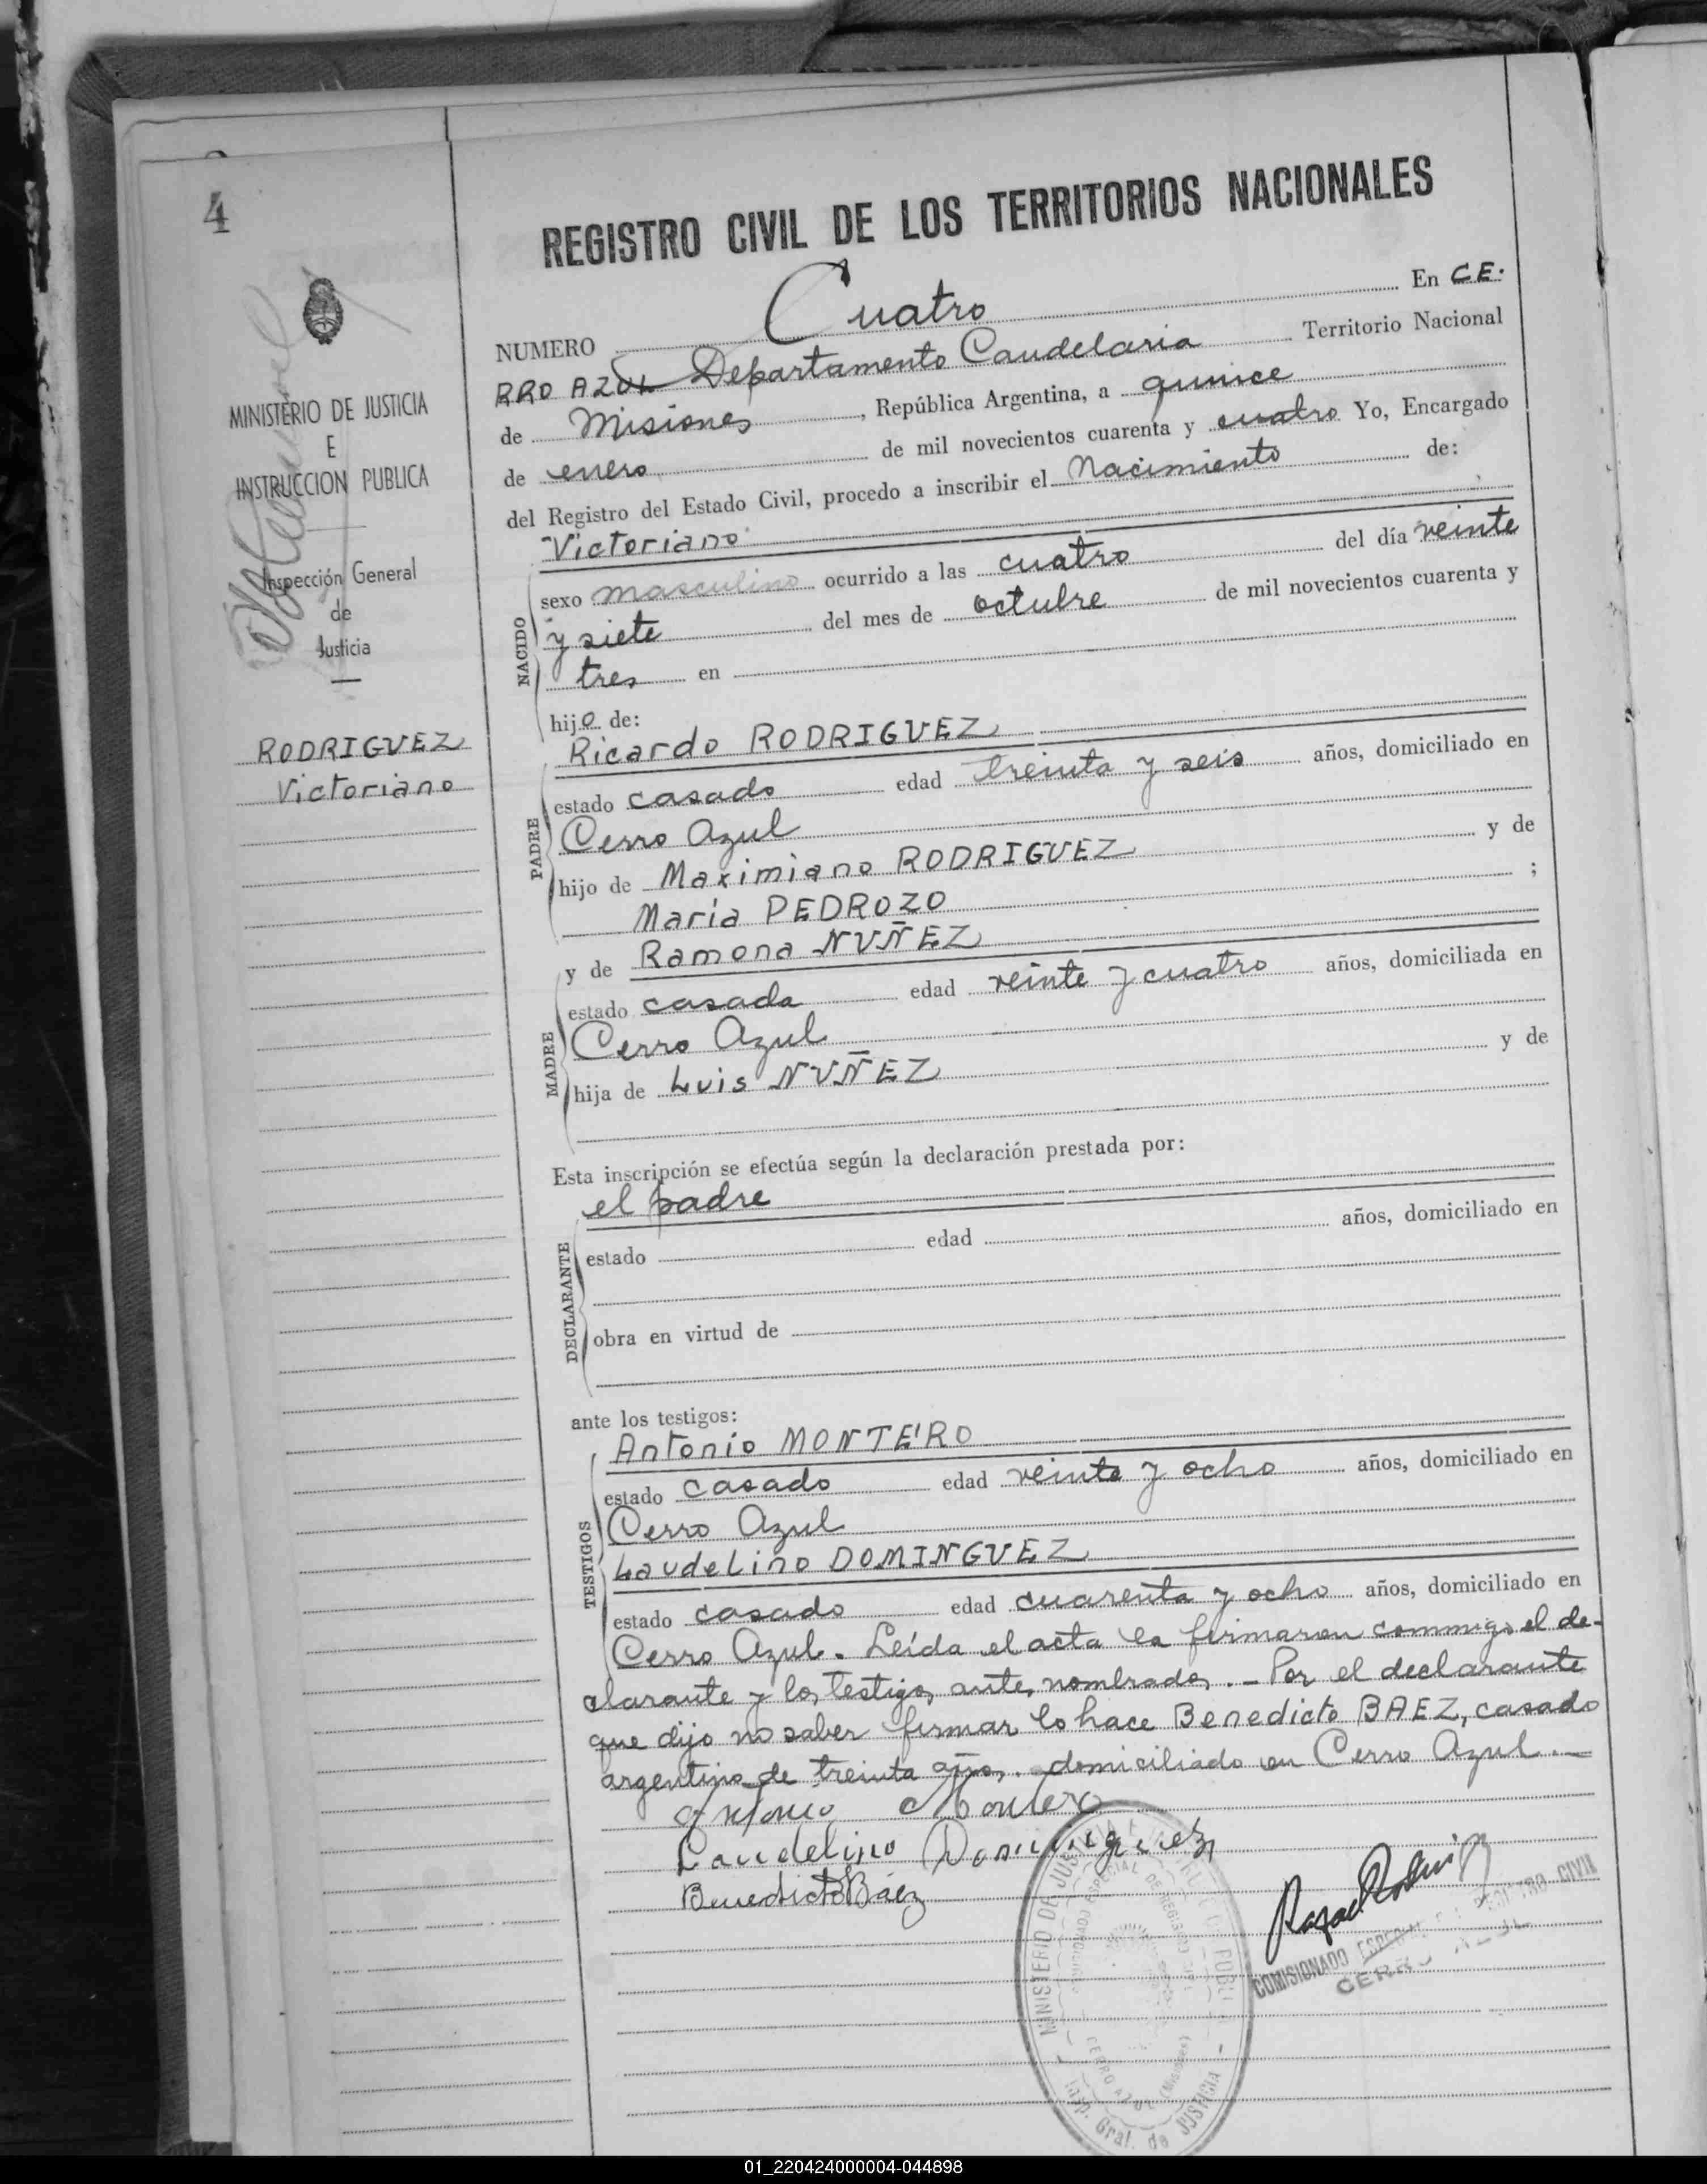 4
REGISTRO CIVIL DE LOS TERRITORIOS NACIONALES
NUMERO Cuatro En CE:
RRO AZUL Departamento Candelaria Territorio Nacional
de Misiones, República Argentina, a quince
de enero de mil novecientos cuarenta y cuatro Yo, Encargado
del Registro del Estado Civil, procedo a inscribir el Nacimiento de:
MINISTERIO DE JUSTICIA
E
INSTRUCCION PUBLICA
Inspección General
de
Justicia
RODRIGUEZ
Victoriano
NACIDO
"Victoriano"
sexo masculino ocurrido a las cuatro del día veinte
y siete del mes de octubre de mil novecientos cuarenta y
tres en
hijo de:
PADRE
Ricardo RODRIGUEZ
estado casado edad treinta y seis años, domiciliado en
Cerro Azul
hijo de Maximiano RODRIGUEZ y de
Maria PEDROZO ;
MADRE
y de Ramona NUÑEZ
estado casada edad veinte y cuatro años, domiciliada en
Cerro Azul
hija de Luis NUÑEZ y de
Esta inscripción se efectúa según la declaración prestada por:
DECLARANTE
el padre
estado edad años, domiciliado en
obra en virtud de
ante los testigos:
TESTIGOS
Antonio MONTE'RO
estado casado edad veinte y ocho años, domiciliado en
Cerro Azul
Laudelino DOMINGUEZ
estado casado edad cuarenta y ocho años, domiciliado en
Cerro Azul. Leída el acta la firmaron conmigo el de-
clarante y los testigos antes nombrados.- Por el declarante
que dijo no saber firmar lo hace Benedicto BAEZ, casado
argentino de treinta años. domiciliado en Cerro Azul.-
Antonio Montero
Laudelino Dominguez
Benedicto Báez
MINISTERIO DE JUSTICIA E
COMISIONADO ESPECIAL DE REGISTRO
CERRO AZUL (Misiones)
Insp. Gral. de JUSTICIA
COMISIONADO ESPECIAL REGISTRO CIVIL
CERRO AZUL
01_220424000004-044898